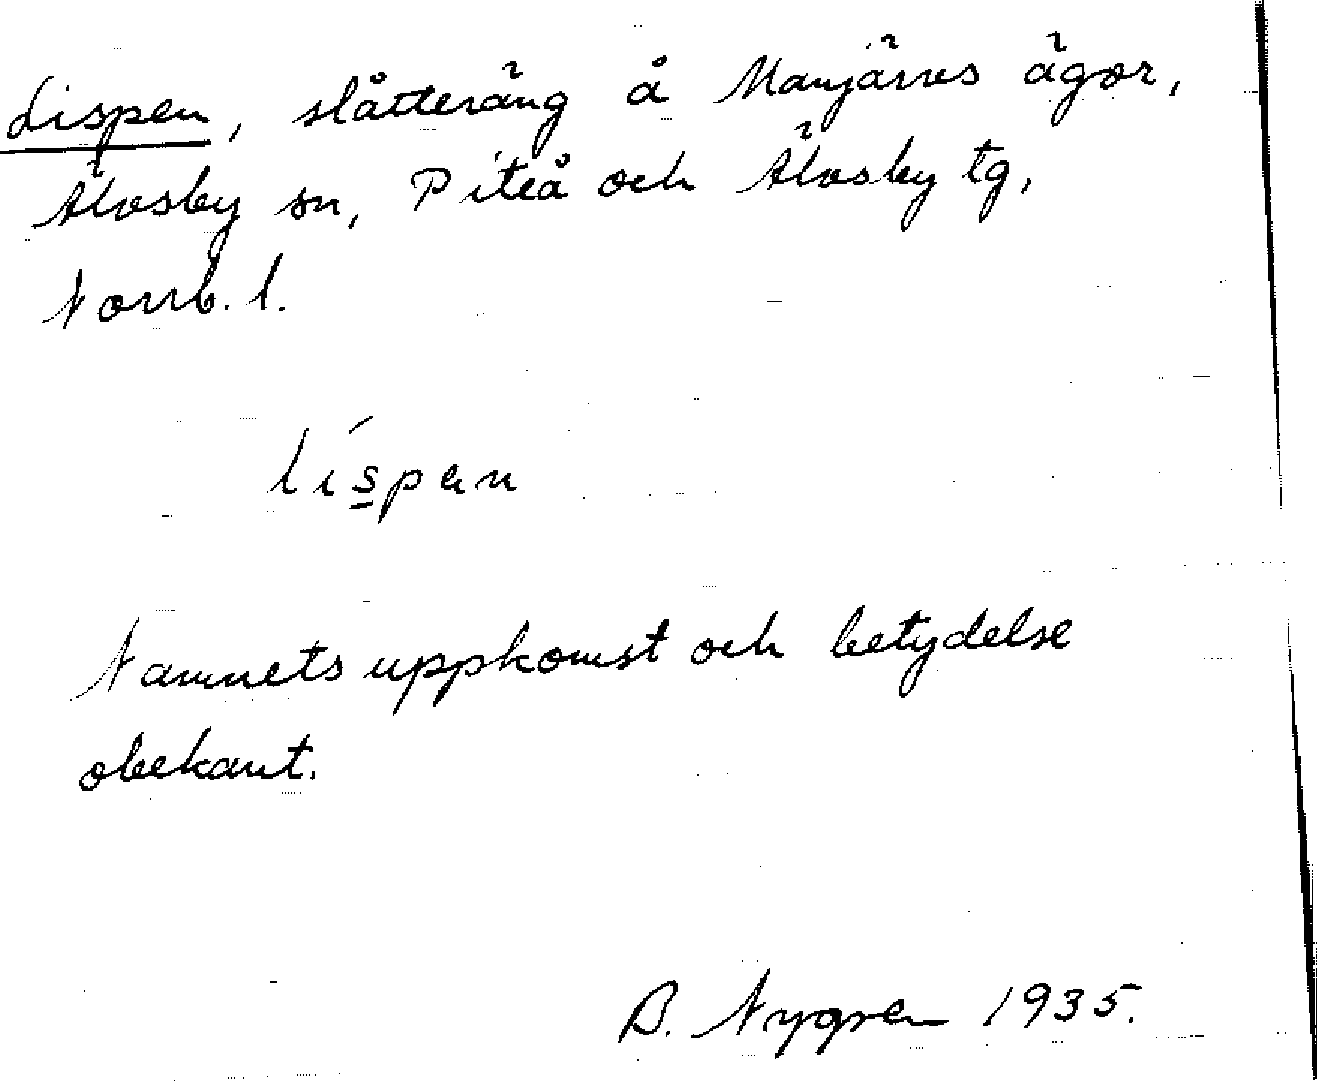 Lispen, slåtteräng å Manjärvs ägor,
Älvsby sn, Piteå och Älvsby tg,
Norrb. l.
líspen
Namnets uppkomst och betydelse
obekant.
B. Nygren 1935.